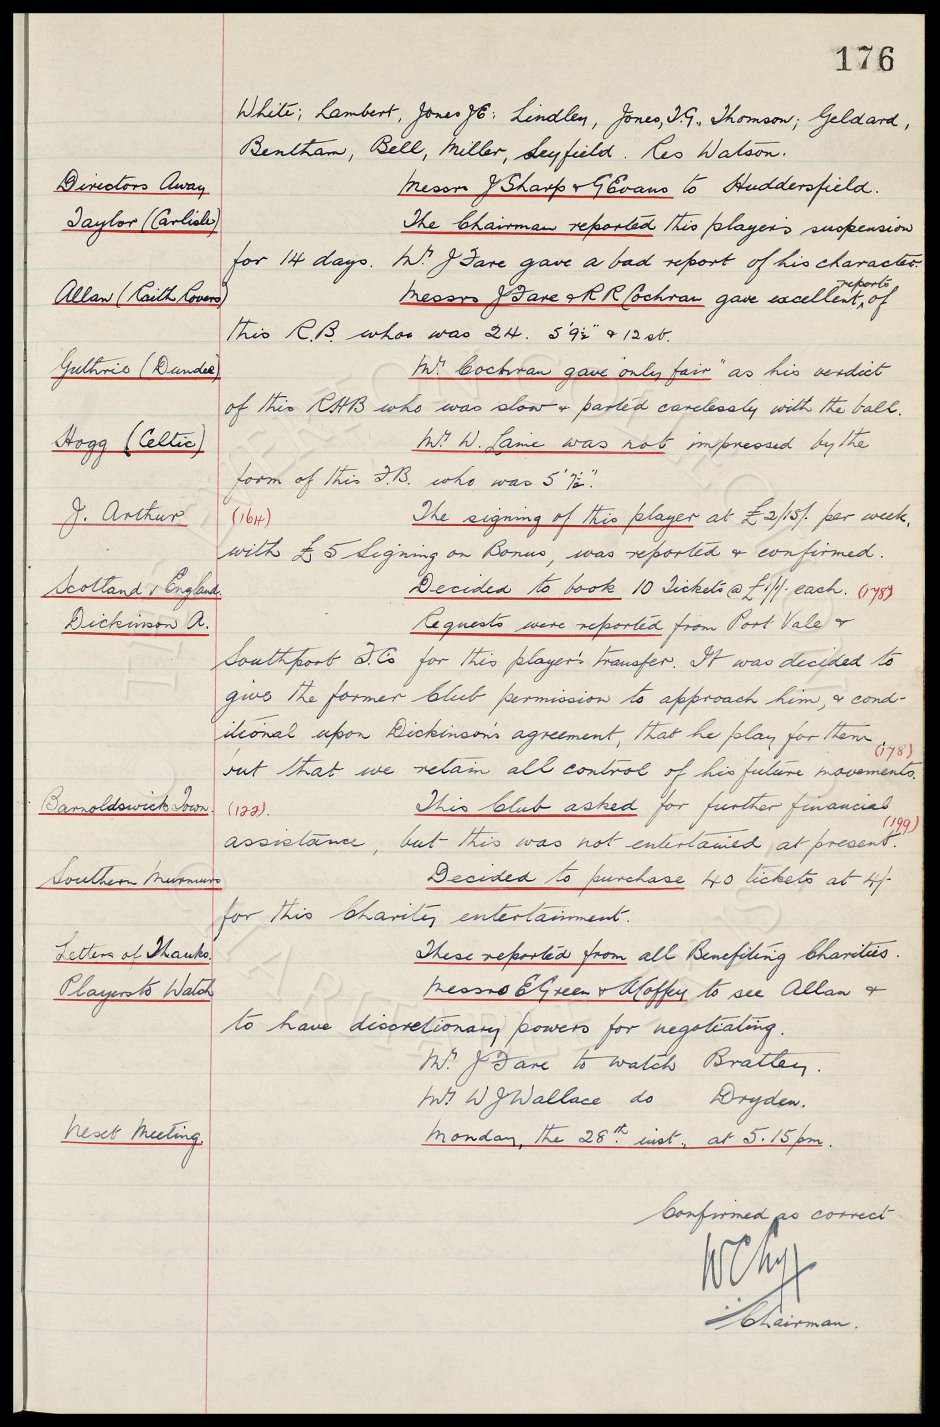 176
White; Lambert, Jones J E; Lindley, Jones, T.G., Thomson; Geldard,
Bentham, Bell, Miller, Leyfield. Res Watson.
Directors Away Messrs J Sharp & G Evans to Huddersfield.
Taylor (Carlisle) The Chairman reported this player's suspension
for 14 days. Mr. J Fare gave a bad report of his character.
Allan (Raith Rovers) Messrs J Fare & R R Cochran gave excellent reports of
this R.B. who was 24. 5'9½" & 12 st.
Guthrie (Dundee) Mr. Cochran gave "only fair" as his verdict
of this RHB who was slow & parted carelessly with the ball.
Hogg (Celtic) Mr. W. Laine was not impressed by the
form of this F.B. who was 5' 7½".
J. Arthur (164) The signing of this player at £2/15/- per week,
with £5 Signing on Bonus, was reported & confirmed.
Scotland v England. Decided to book 10 Tickets @ £1/1/- each. (178)
Dickinson A. Requests were reported from Port Vale &
Southport F.Cs for this player's transfer. It was decided to
give the former Club permission to approach him, & cond-
itional upon Dickinson's agreement, that he play for them,
but that we retain all control of his future movements. (178)
Barnoldswick Town. (122). This Club asked for further financial
assistance, but this was not entertained at present. (199)
Southern Murmurs Decided to purchase 40 tickets at 4/-
for this Charity entertainment.
Letters of Thanks. These reported from all Benefiting Charities.
Players to Watch Messrs E Green & A Coffey to see Allan &
to have discretionary powers for negotiating.
Mr. J Fare to watch Bratley.
Mr. W J Wallace do Dryden.
Next Meeting. Monday, the 28th. inst., at 5.15 pm.
Confirmed as correct
W C
Chairman.